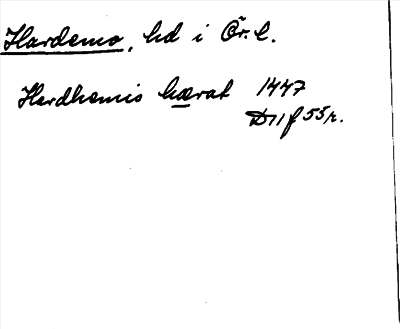 Hardemo, hd i Ör. l.
Hardhemis hærat 1447
D11 f 55 r.